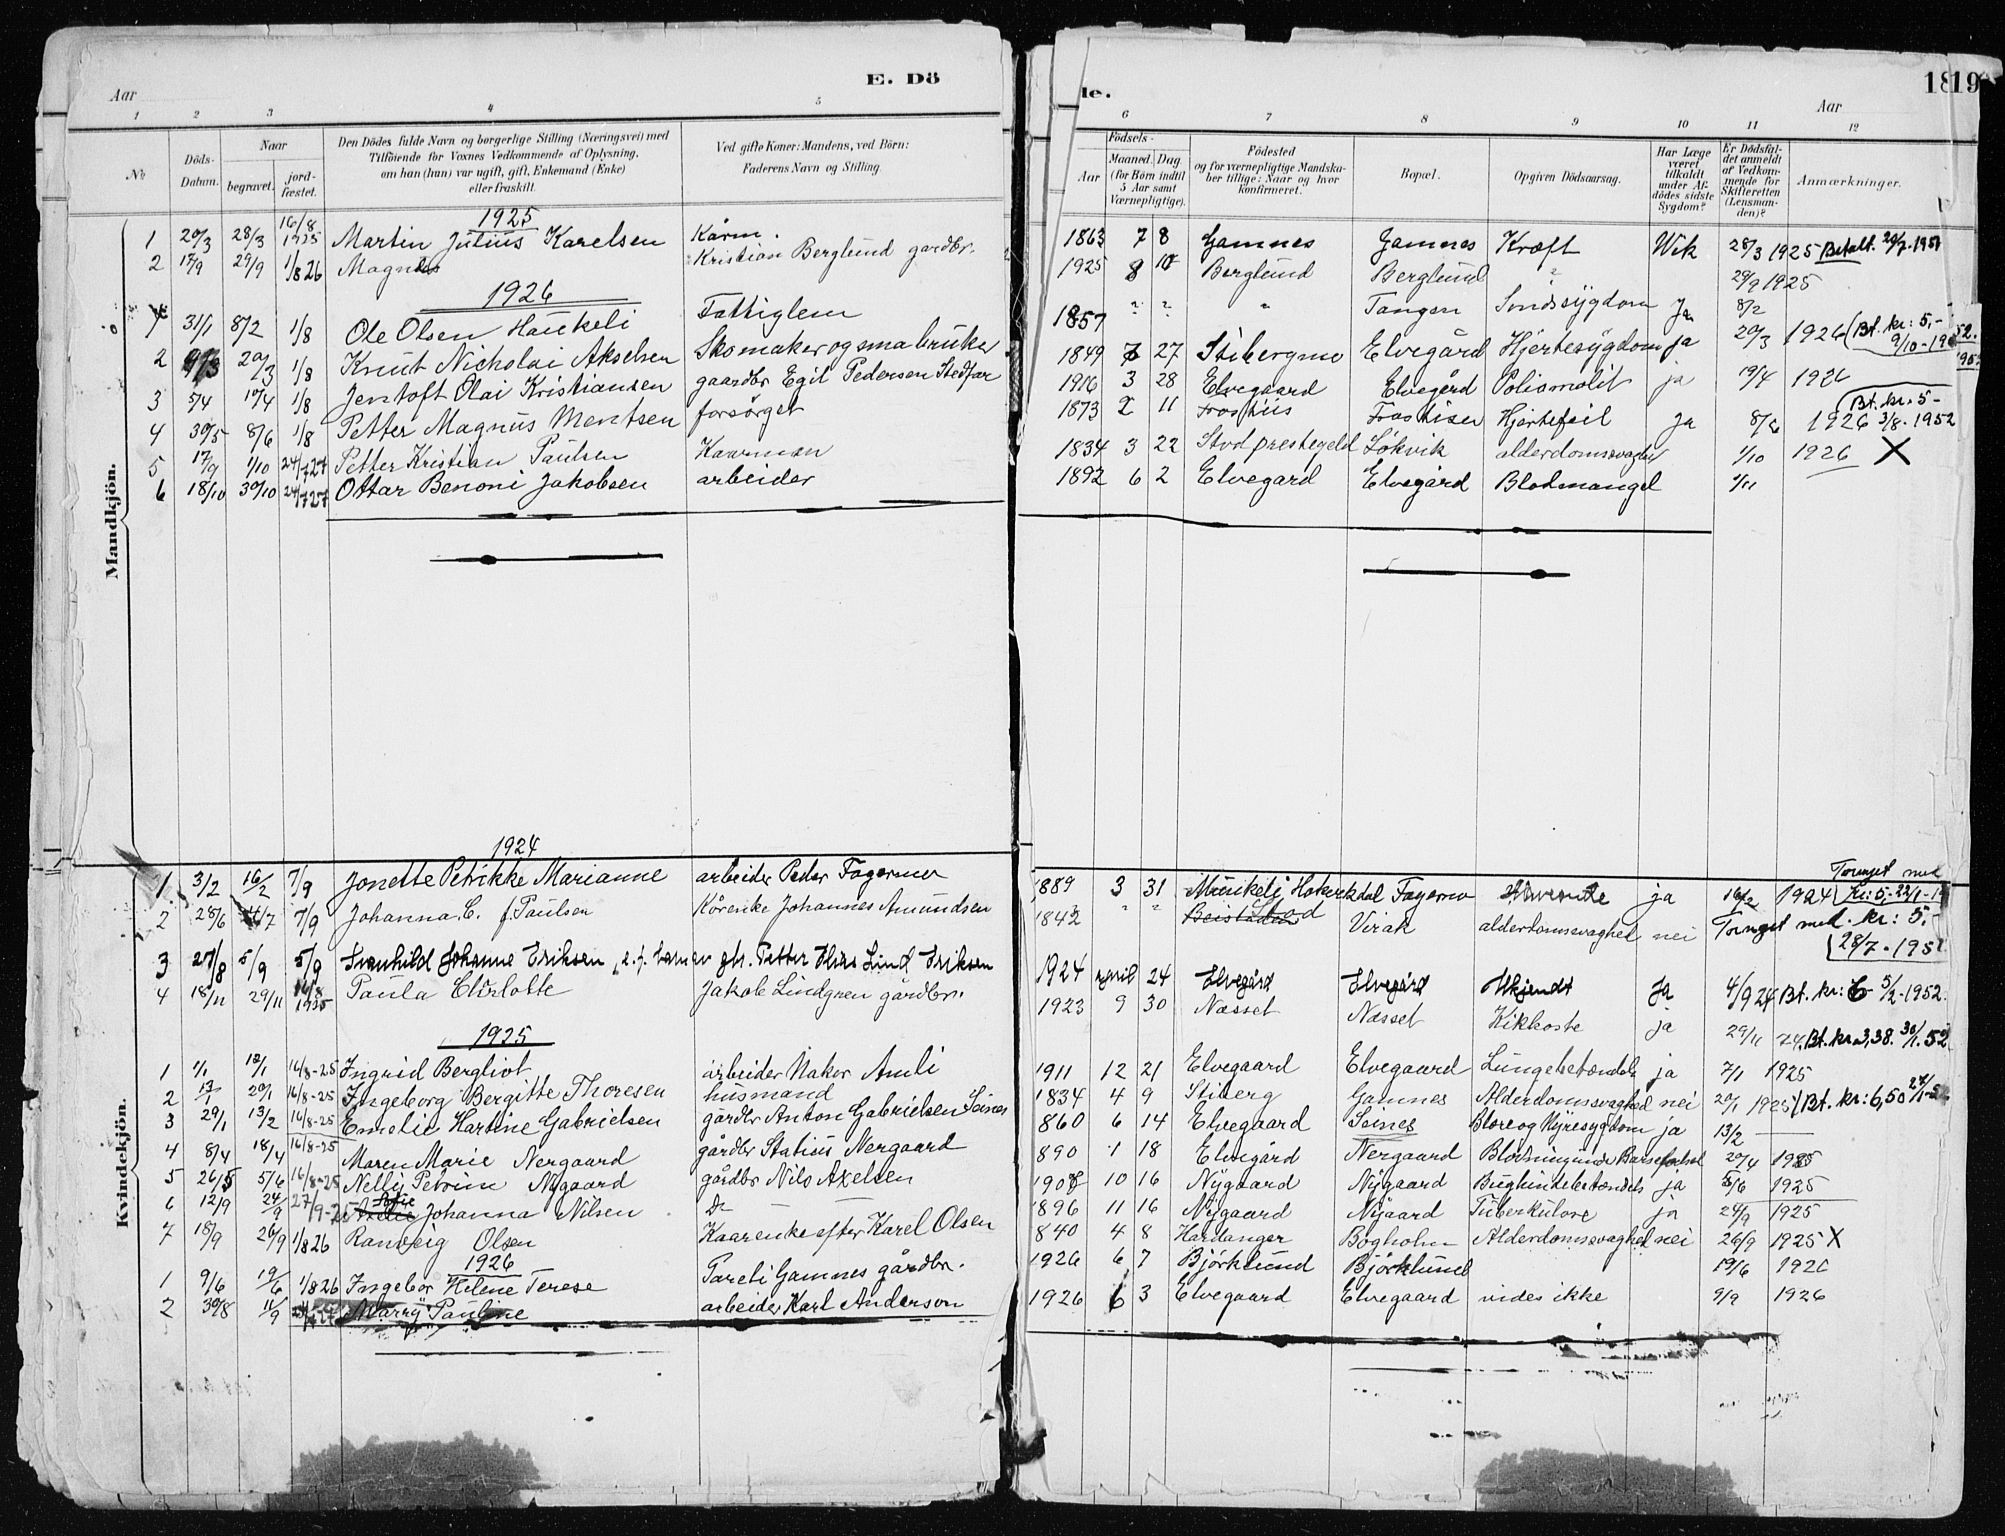 E. Dö
de.
18 19
Aar
Aar
1 2 3 4 5 6 7 8 9 10 11 12
No
Döds-Datum.
Naar begravet. jordfæstet.
Den Dödes fulde Navn og borgerlige Stilling (Næringsvei) med Tilföiende for Voxnes Vedkommende af Oplysning, om han (hun) var ugift, gift, Enkemand (Enke) eller fraskilt.
Ved gifte Koner: Mandens, ved Börn: Faderens Navn og Stilling.
Födsels-
Aar
Maaned. Dag
(for Börn indtil 5 Aar samt Værnepligtige).
Födested og for værnepligtige Mandskaber tillige: Naar og hvor konfirmeret.
Bopæl.
Opgiven Dödsaarsag.
Har Læge været tilkaldt under Afdödes sidste Sygdom?
Er Dödsfaldet anmeldt af Vedkommende for Skifteretten (Lensmanden)?
Anmærkninger.
Mandkjön.
1925
1 20/3 28/3 16/8 1925 Martin Julius Karelsen Kårm. 1863 7 8 Gamnes Gamnes Kræft Wik 28/3 1925 Betalt. 20/7.1951
2 17/9 29/9 1/8 26 Magnus Kristian Berglund gardbr. 1925 8 10 Berglund Berglund " 29/9 1925
1926
1 31/1 8/2 1/8 Ole Olsen Haukeli Fattiglem 1857 " " " Tangen Sindssygdom Ja 8/2
2 9/3 20/3 1/8 Knut Nicholai Akselsen Skomaker og smabruker 1849 7 27 Stibergmo Elvegård Hjertesygdom ja 20/3 1926 (Bt. kr: 5,- 9/10-1952.
3 5/4 19/4 1/8 Jentoft Olai Kristiansen gaardbr Egil Pedersen Stedfar 1916 3 28 Elvegaard Elvegård Poliomolit ja 19/4 1926
4 30/5 8/6 1/8 Petter Magnus Mentsen forsørget 1873 2 11 Frostiis Frostisen Hjertefeil Ja 8/6 1926 Bt. kr. 5- 3/8-1952
5 17/9 1/10 24/7 27 Petter Kristian Paulsen Kaarman 1834 3 22 Stod prestegeld Løkvik alderdomssvaghet 1/10 1926 X
6 18/10 30/10 24/7 27 Ottar Benoni Jakobsen arbeider 1892 6 2 Elvegard Elvegård Blodmangel 1/11
Kvindekjön.
1924
1. 3/2 16/2 7/9 Jonette Petrikke Marianne arbeider Peder Fagermo 1889 3 31 Fagermo ja 16/2 1924 Tinget med Kr: 5,- 22/1-1
2 28/6 7/9 Johanna C. f. Paulsen Kårenke Johannes Amundsen 1842 " " Stod Virak alderdomssvaghet nei Tinget med. kr: 5,- (28/7-195
3 27/8 5/9 5/9 Svanhild Johanne Eriksen Petter Elias Lind Eriksen 1924 april 24 Elvegård Elvegård Ukjendt Ja 4/9 24 Bt. kr: 6 5/2-1952.
4 18/11 29/11 16/8 1925 Paula Charlotte Jakob Lindgren gårdbr. 1923 9 30 Næsset Næsset Kikhoste ja 29/11 24. Bt. kr. 3,38. 30/1.52
1925
1 1/1 12/1 16/8-25 Ingrid Bergliot arbeider Hakor Amli 1911 12 21 Elvegaard Elvegaard Lungebetændels ja 7/1 1925
2 13/1 20/1 16/8-25 Ingeborg Bergitte Thoresen husmand 1834 4 9 Stiberg Gamnes Alderdomssvaghed nei 20/1 1925 (Bt. kr: 6,50
3 29/1 13/2 16/8-25 Emelie Hartine Gabrielsen gårdbr Anton Gabrielsen Seines 860 6 14 Elvegaard Seines Blære og Nyresygdom ja 13/2
4 8/4 18/4 16/8-25 Maren Marie Nergaard gårdbr Statius Nergaard 890 1 18 Elvegård Nergaard 20/4 1925
5 26/5 5/6 16/8-25 Nelly Petrine Nygaard gårdbr Nils Axelsen 1908 10 16 Nygaard Nygaard Bughindebetændels ja 5/6 1925
6 12/9 24/9 27/9-25 Johanna Nilsen Do 1896 11 16 Nygaard Nygaard Tuberkulose ja 24/9 1925
7 18/9 26/9 1/8 26 Ranveig Olsen Kaarenke efter Karel Olsen 840 4 8 Hardanger Bogholm Alderdomssvaghet nei 26/9 1925 X
1926
1 9/6 19/6 1/8 26 Ingebor Helene Terese Pareli Gamnes gårdbr. 1926 6 7 Bjørklund Bjørklund 19/6 1926
2 30/8 11/9 24/7 27 Marry Pauline arbeider Karl Anderson 1926 6 3 Elvegaard Elvegaard vides ikke 9/9 1926